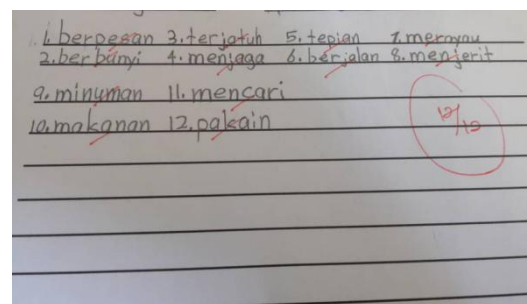 1. berpesan 3. terjatuh 5. tepian 7. meraynu
2. berbunyi 4. menjaga 6. berjalan 8. menjerit
9. minuman 11. mencari
10. makanan 12. pakain
12/12